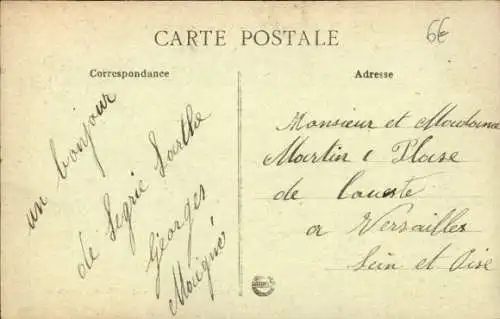 CARTE POSTALE
6€
Correspondance
Adresse
un bonjour
de Segrie Sarthe
Georges
Monsieur et Madame
Martin 1 Plase
de
a Versailles
Sein et Oise